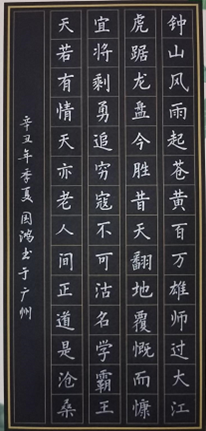 钟山风雨起苍黄百万雄师过大江
虎踞龙盘今胜昔天翻地覆慨而慷
宜将剩勇追穷寇不可沽名学霸王
天若有情天亦老人间正道是沧桑
辛丑年季夏国鸿书于广州